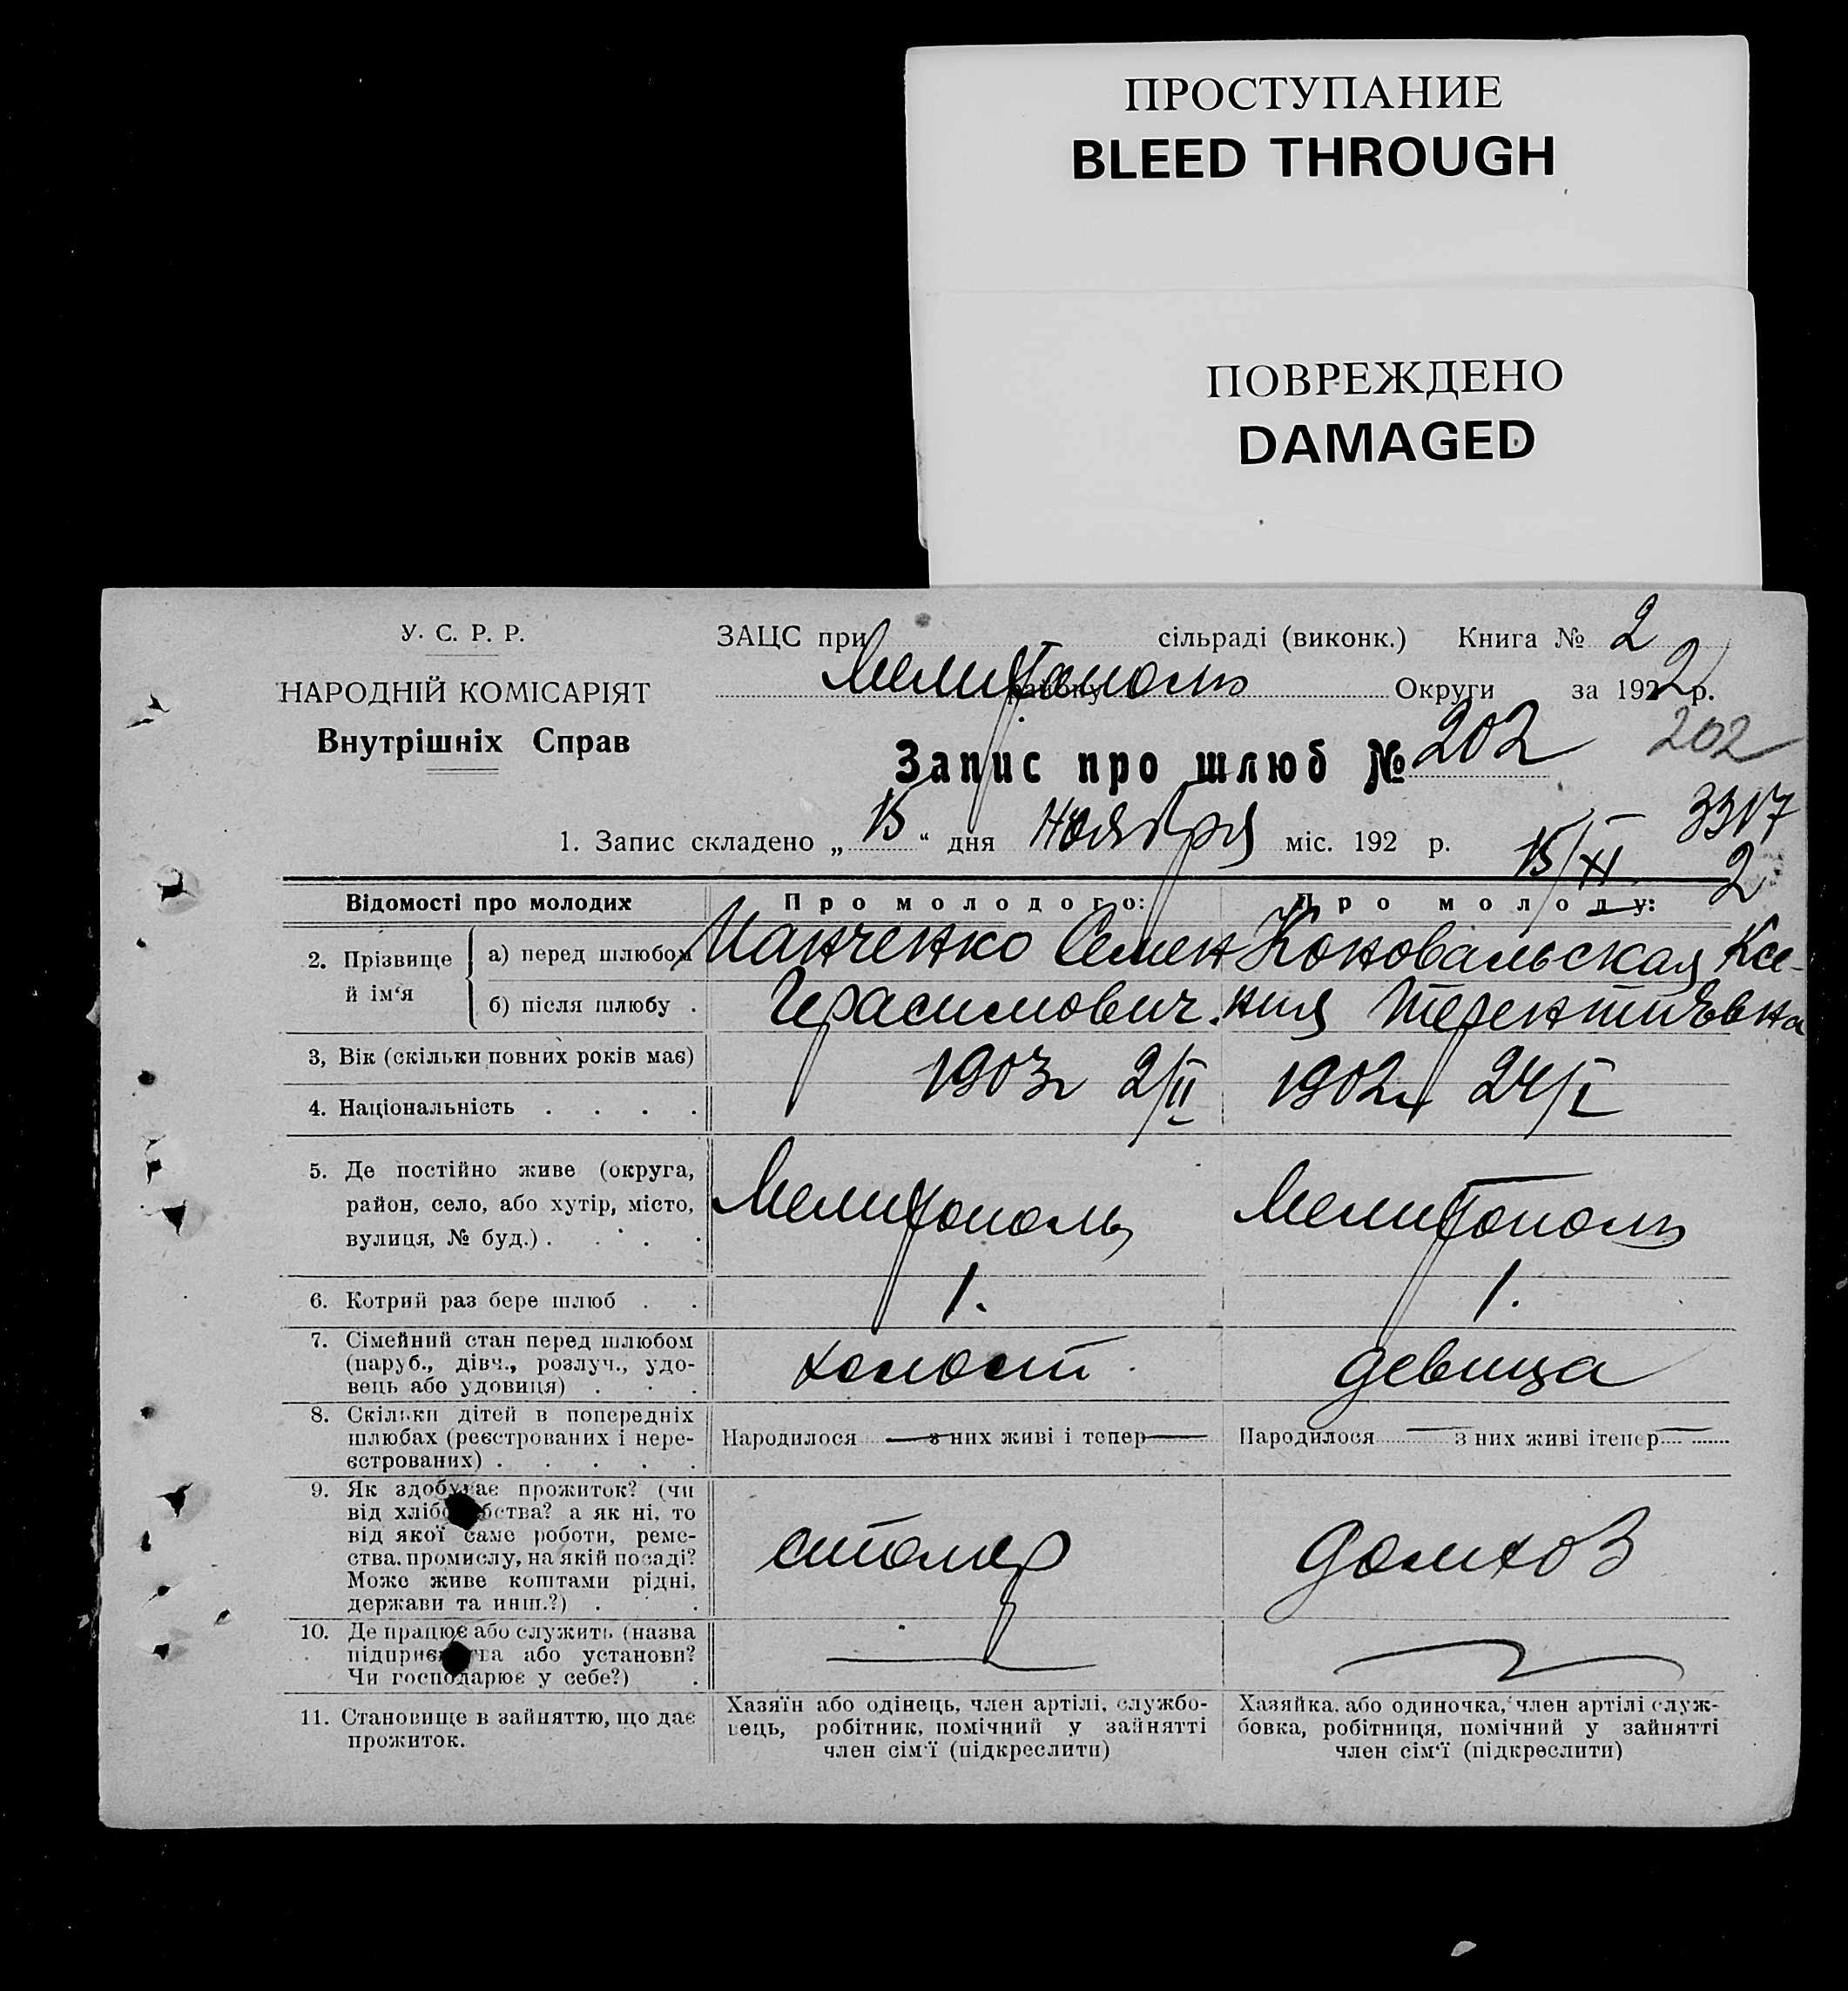 ПРОСТУПАНИЕ
BLEED THROUGH
ПОВРЕЖДЕНО
DAMAGED
У. С. Р. Р.
НАРОДНІЙ КОМІСАРІЯТ
Внутрішніх Справ
ЗАЦС при сільраді (виконк.) Книга № 2
Мелитополь району Округи за 1922 р.
Запис про шлюб № 202 202
3317
1. Запис складено „ 15 “ дня Ноября міс. 192 р. 15/XI 2
Відомості про молодих Про молодого: Про молоду:
2. Прізвище й ім‘я
а) перед шлюбом Панченко Семен Коновальская Ксе-
б) після шлюбу . Герасимович. ния Терентиевна
3, Вік (скільки повних років має) 1903г 2/II 1902г 24/I
4. Національність . . . .
5. Де постійно живе (округа, район, село, або хутір, місто, вулиця, № буд.) . . . . Мелитополь Мелитополь
6. Котрий раз бере шлюб . . 1. 1.
7. Сімейний стан перед шлюбом (паруб., дівч., розлуч., удовець або удовиця) . . . холост девица
8. Скільки дітей в попередніх шлюбах (реєстрованих і нереєстрованих) . . . . . Народилося — з них живі і тепер — Народилося — з них живі ітепер —
9. Як здобуває прожиток? (чи від хліборобства? а як ні, то від якої саме роботи, ремества, промислу, на якій посаді? Може живе коштами рідні, держави та инш.?) . . столяр домхоз
10. Де працює або служить (назва підприємства або установи? Чи господарює у себе?) . — —
11. Становище в зайняттю, що дає прожиток.
Хазяїн або одінець, член артілі, службовець, робітник, помічний у зайнятті член сім‘ї (підкреслити)
Хазяйка, або одиночка, член артілі службовка, робітниця, помічний у зайнятті член сім‘ї (підкреслити)